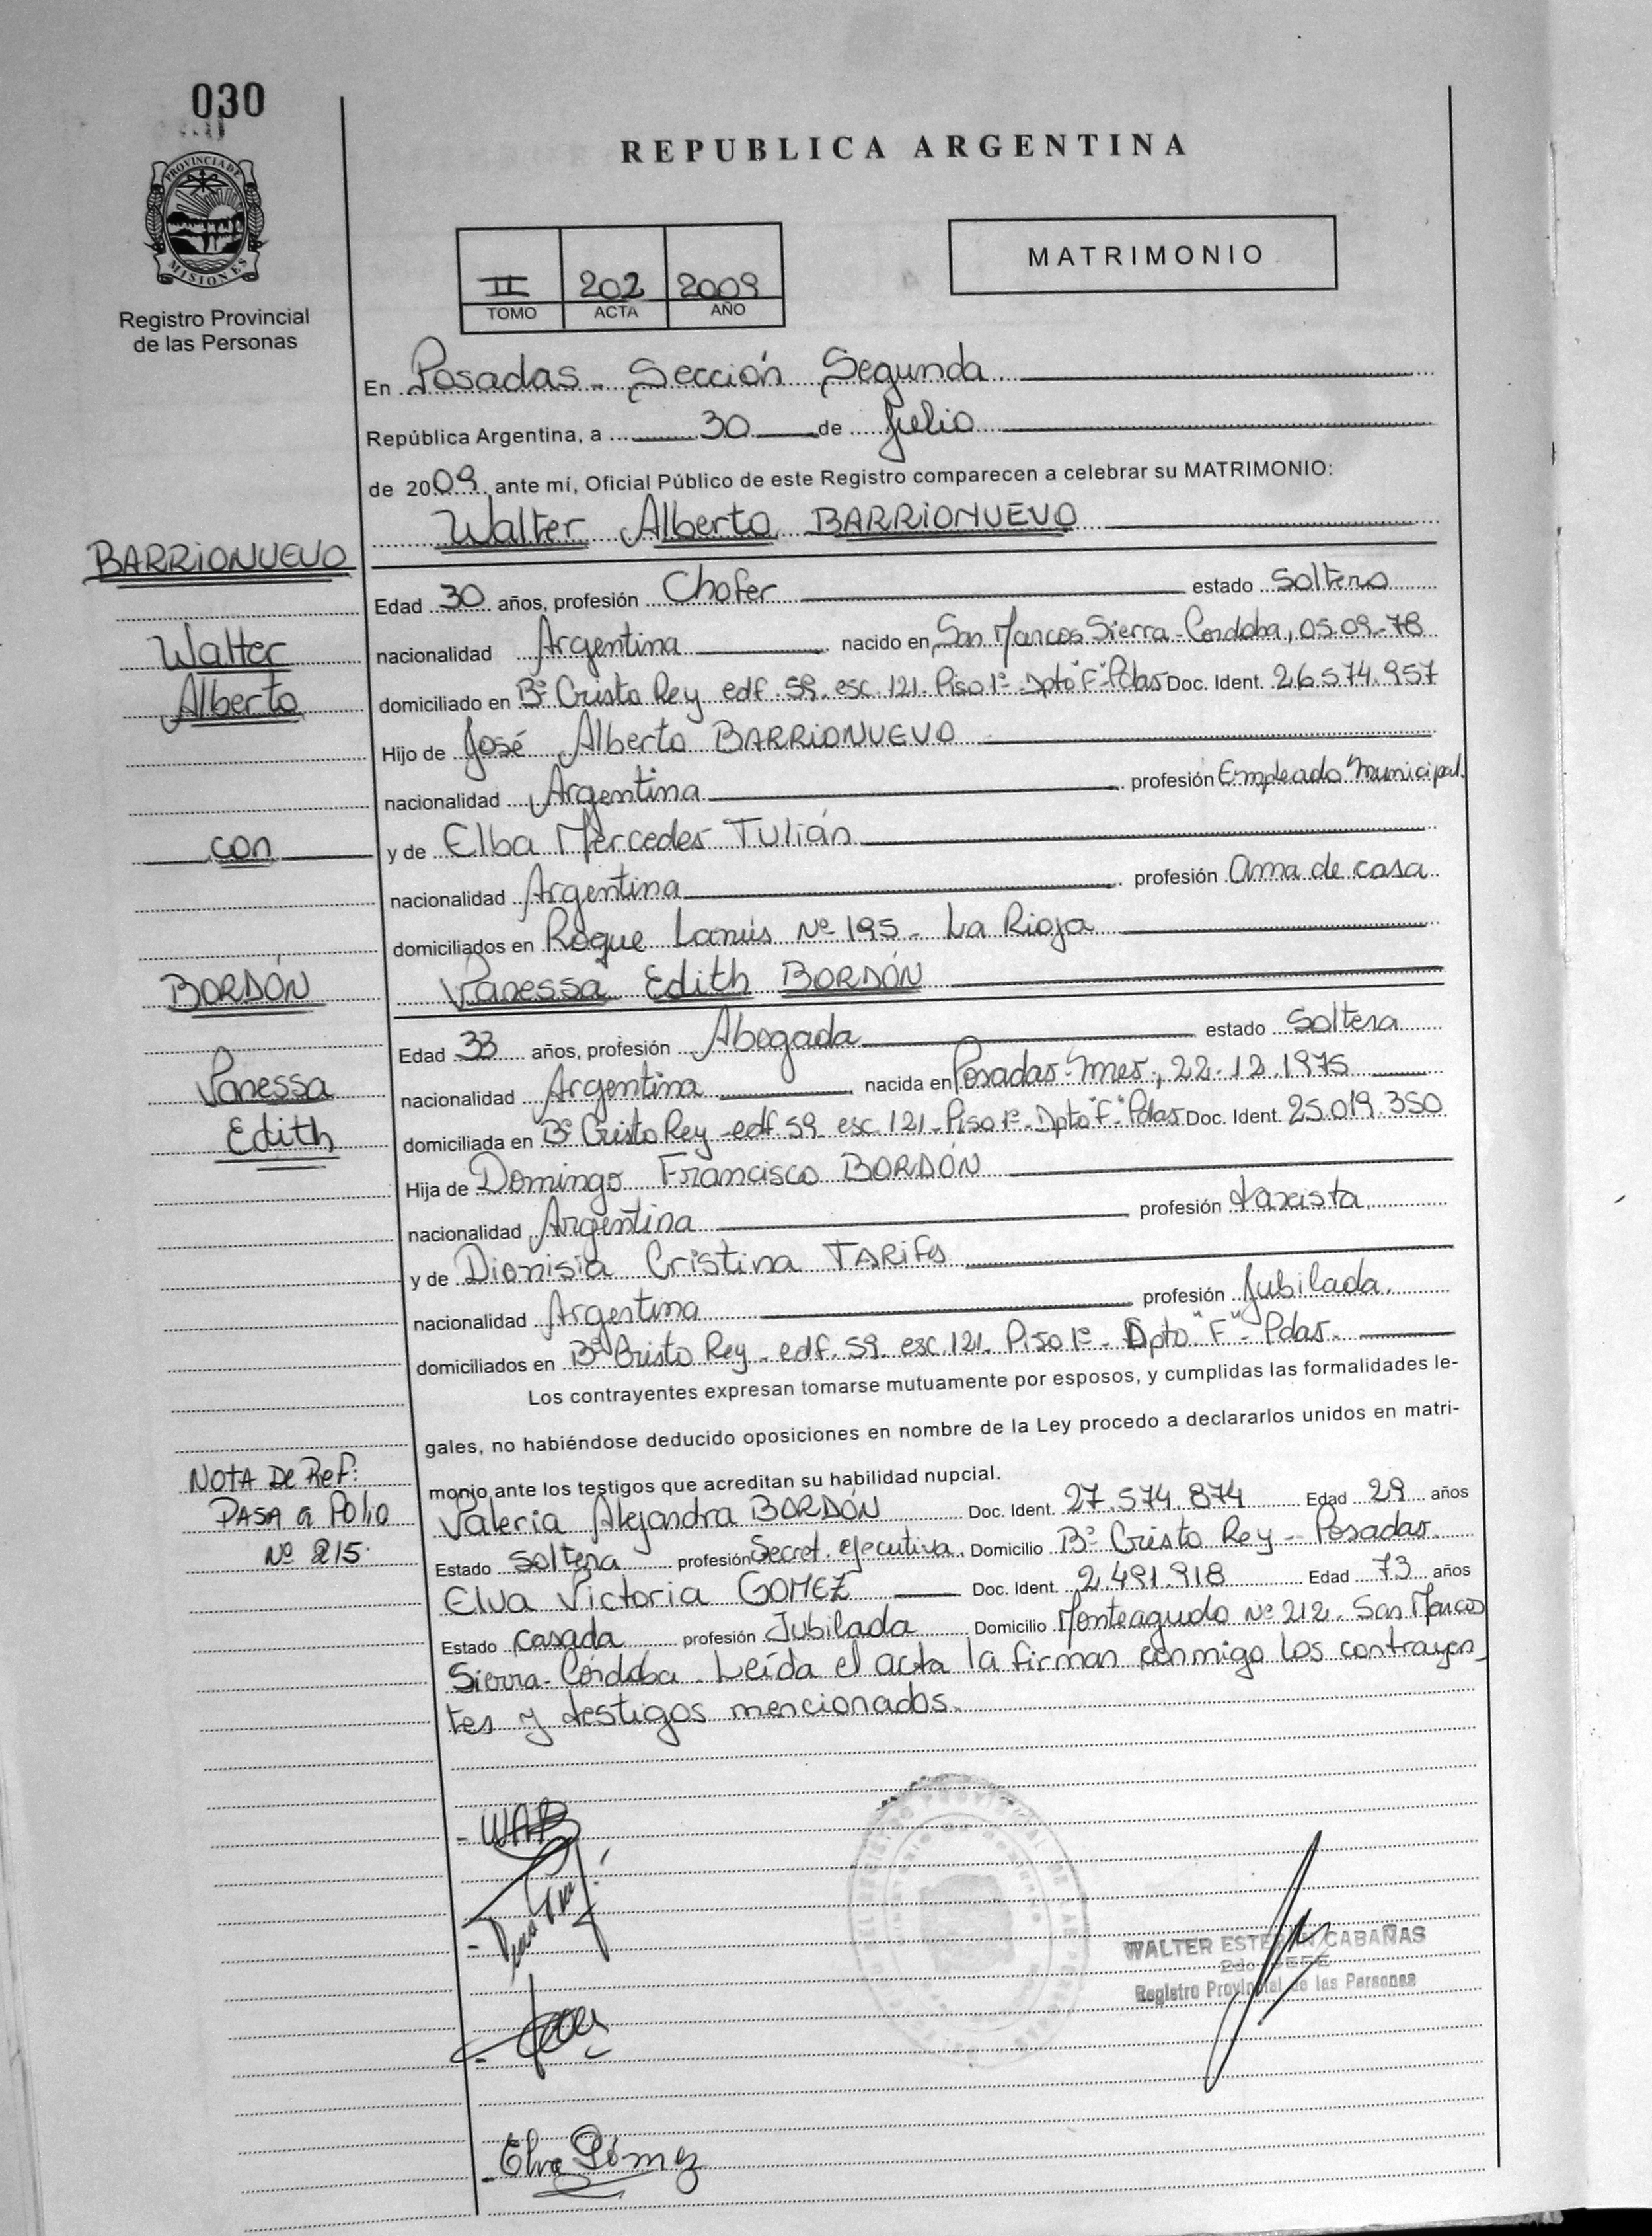 030
PROVINCIA DE
MISIONES
Registro Provincial
de las Personas
REPUBLICA ARGENTINA
MATRIMONIO
II 202 2009
TOMO ACTA AÑO
En Posadas - Sección Segunda
República Argentina, a 30 de Julio
de 2009, ante mí, Oficial Público de este Registro comparecen a celebrar su MATRIMONIO:
Walter Alberto BARRIONUEVO
BARRIONUEVO
Edad 30 años, profesión Chofer estado Soltero
Walter
nacionalidad Argentina nacido en San Marcos Sierra - Cordoba, 05-09-78
Alberto
domiciliado en Bº Cristo Rey edf. 59 esc. 121. Piso 1º - Dpto "F" - Pdas Doc. Ident. 26.574.957
Hijo de José Alberto BARRIONUEVO
nacionalidad Argentina profesión Empleado Municipal.
con
y de Elba Mercedes TULIÁN
nacionalidad Argentina profesión ama de casa
domiciliados en Roque Lanús Nº 195 - La Rioja
BORDÓN
Vanessa Edith BORDÓN
Edad 33 años, profesión Abogada estado Soltera
Vanessa
nacionalidad Argentina nacida en Posadas - Mnes., 22.12.1975
Edith
domiciliada en Bº Cristo Rey - edf. 59 esc. 121 - Piso 1º - Dpto "F" - Pdas Doc. Ident. 25.019.350
Hija de Domingo Francisco BORDÓN
nacionalidad Argentina profesión taxista
y de Dionisia Cristina TARIFA
nacionalidad Argentina profesión Jubilada.
domiciliados en Bº Cristo Rey - edf. 59 esc. 121. Piso 1º - Dpto "F" - Pdas.
Los contrayentes expresan tomarse mutuamente por esposos, y cumplidas las formalidades le-
gales, no habiéndose deducido oposiciones en nombre de la Ley procedo a declararlos unidos en matri-
monio ante los testigos que acreditan su habilidad nupcial.
NOTA DE Ref:
PASA a Folio
Nº 215.
Valeria Alejandra BORDÓN Doc. Ident. 27.574.874 Edad 29 años
Estado Soltera profesión Secret. ejecutiva. Domicilio Bº Cristo Rey - Posadas.
Elva Victoria GOMEZ Doc. Ident. 2.491.918 Edad 73 años
Estado Casada profesión Jubilada Domicilio Monteagudo Nº 212. San Marcos
Sierra - Córdoba. Leída el acta la firman conmigo los contrayen_
tes y testigos mencionados.
- WAB
WALTER ESTEBAN CABAÑAS
2do JEFE
Registro Provincial de las Personas
- Elva Gómez